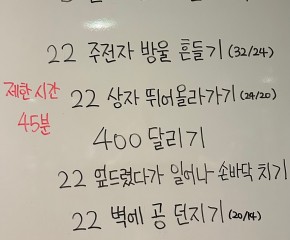 22 주전자 방울 흔들기 (32/24)
제한시간
45분
22 상자 뛰어올라가기 (24/20)
400 달리기
22 엎드렸다가 일어나 손바닥 치기
22 벽에 공 던지기 (20/14)